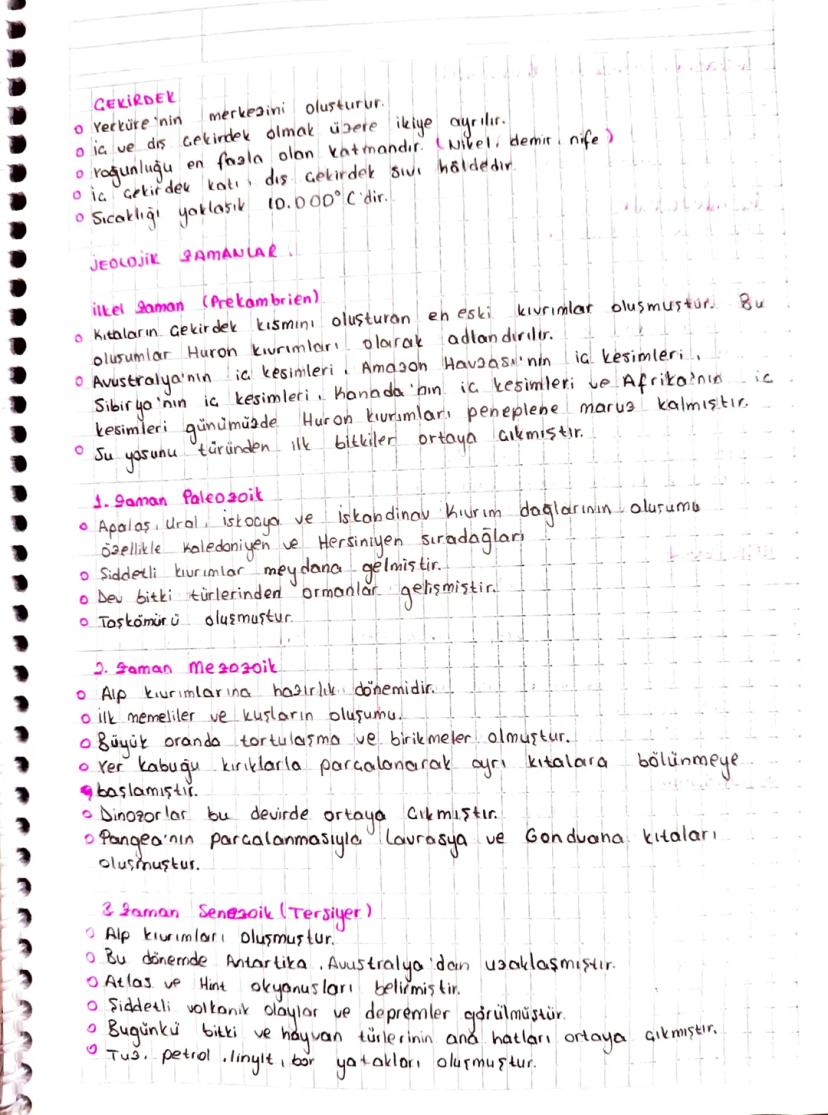 ÇEKİRDEK
Yerküre'nin merkezini oluşturur.
iç ve dış çekirdek olmak üzere ikiye ayrılır.
Yoğunluğu en fazla olan katmandır. (Nikel, demir, nife)
iç çekirdek katı, dış çekirdek sıvı hâldedir.
Sıcaklığı yaklaşık 10.000°C'dir.
JEOLOJİK ZAMANLAR
ilkel zaman (Prekambrien)
Kıtaların çekirdek kısmını oluşturan en eski kıvrımlar oluşmuştur. Bu
oluşumlar Huron kıvrımları olarak adlandırılır.
Avustralya'nın iç kesimleri, Amazon Havzası'nın iç kesimleri,
Sibirya'nın iç kesimleri, Kanada'nın iç kesimleri ve Afrika'nın iç
kesimleri günümüzde Huron kıvrımları peneplene maruz kalmıştır.
Su yosunu türünden ilk bitkiler ortaya çıkmıştır.
1. Zaman Paleozoik
Apalaş, Ural, iskoçya ve iskandinav kıvrım dağlarının oluşumu
özellikle Kaledoniyen ve Hersiniyen sıradağları
Şiddetli kıvrımlar meydana gelmiştir.
Dev bitki türlerinden ormanlar gelişmiştir.
Taşkömürü oluşmuştur.
2. Zaman Mezozoik
Alp kıvrımlarına hazırlık dönemidir.
ilk memeliler ve kuşların oluşumu.
Büyük oranda tortulaşma ve birikmeler olmuştur.
Yer kabuğu kırıklarla parçalanarak ayrı kıtalara bölünmeye
başlamıştır.
Dinozorlar bu devirde ortaya çıkmıştır.
Pangea'nın parçalanmasıyla Lavrasya ve Gonduana kıtaları
oluşmuştur.
3 Zaman Senezoik (Tersiyer)
Alp kıvrımları oluşmuştur.
Bu dönemde Antartika, Avustralya'dan uzaklaşmıştır.
Atlas ve Hint okyanusları belirmiştir.
Şiddetli volkanik olaylar ve depremler görülmüştür.
Bugünkü bitki ve hayvan türlerinin ana hatları ortaya çıkmıştır.
Tuz, petrol, linyit, bor yatakları oluşmuştur.